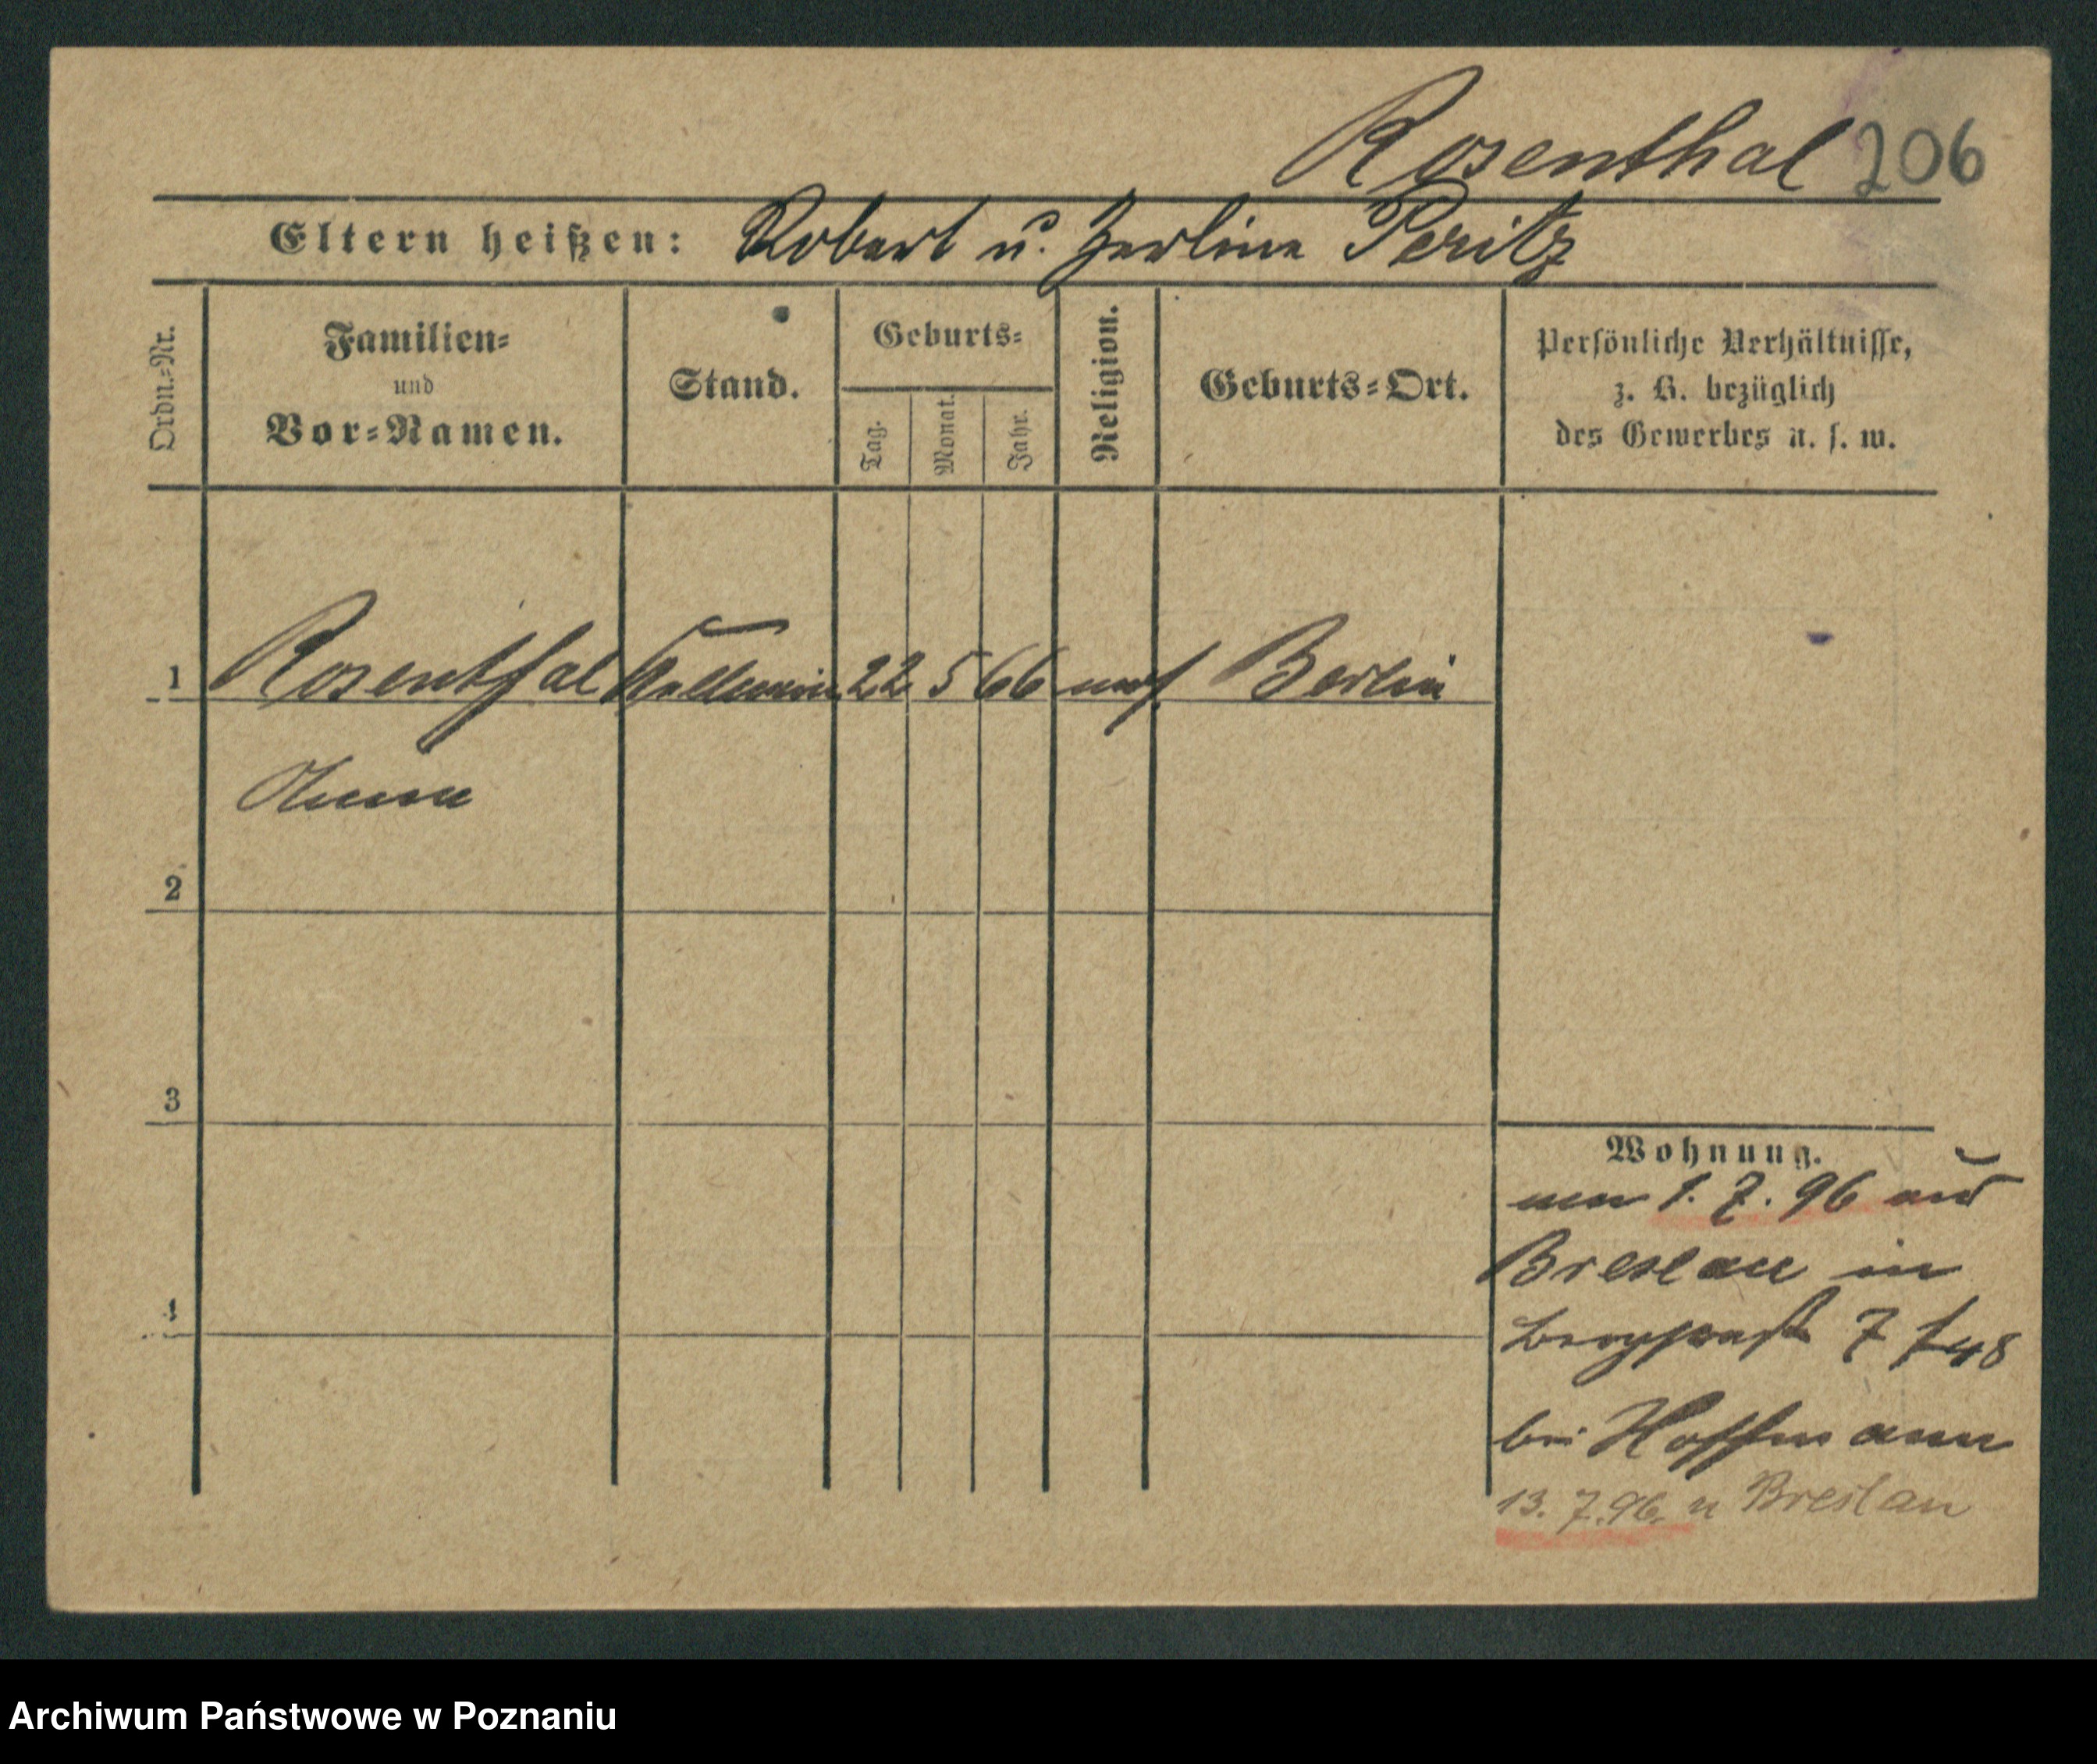 Rosenthal 206
Eltern heißen: Robert u. Zerline Peritz
Ordn.-Nr.
Familien-
und
Vor-Namen.
Stand.
Geburts-
Tag.
Monat.
Jahr.
Religion.
Geburts-Ort.
Persönliche Verhältnisse,
z. B. bezüglich
des Gewerbes u. s. w.
1 Rosenthal 22 5 66 Berlin
2
3
4
Wohnung.
1. 7. 96 aus
Breslau in
7
bei Hoffmann
13. 7. 96. n Breslau
Archiwum Państwowe w Poznaniu